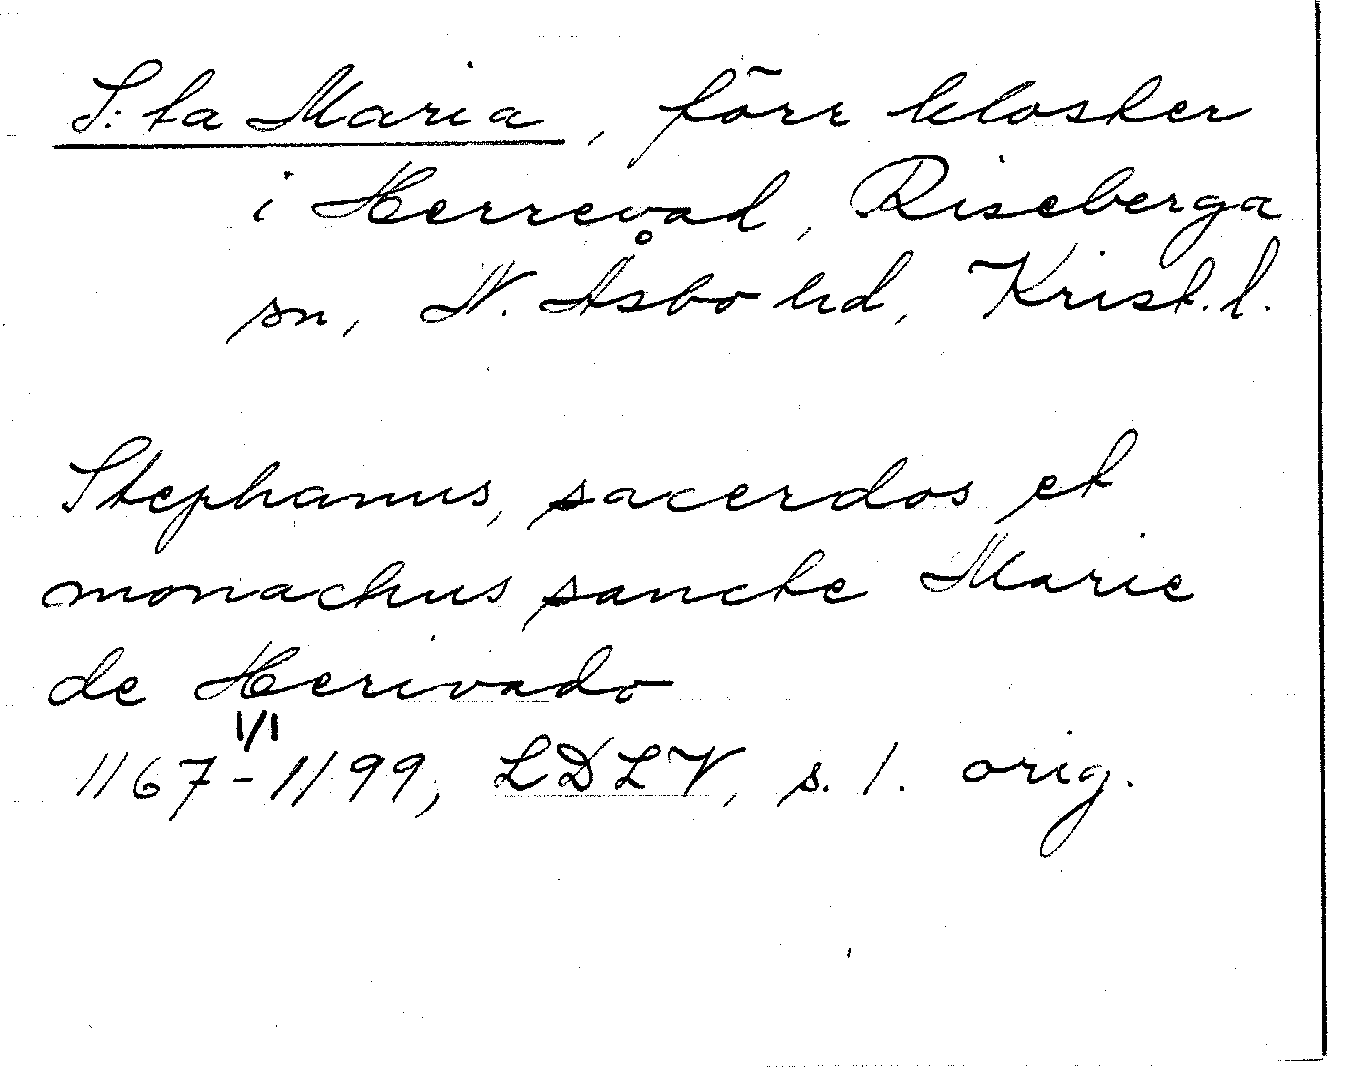 S:ta Maria, förr kloster
i Herrevad, Riseberga
sn, N. Åsbo hd, Krist. l.
Stephanus, sacerdos et
monachus sancte Marie
de Herivado
1/1
1167-1199, LDLV, s. 1. orig.